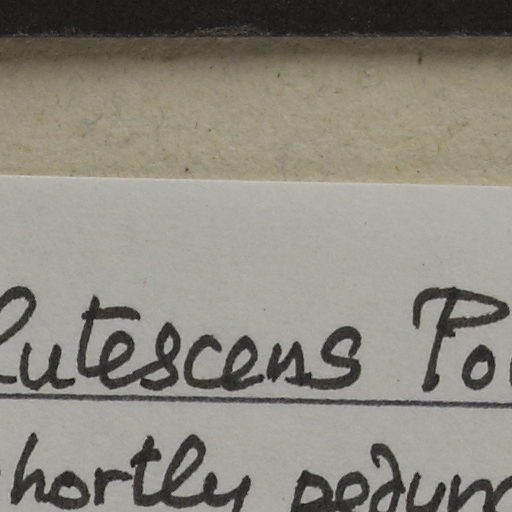 lutescens Po
hortly pedunc